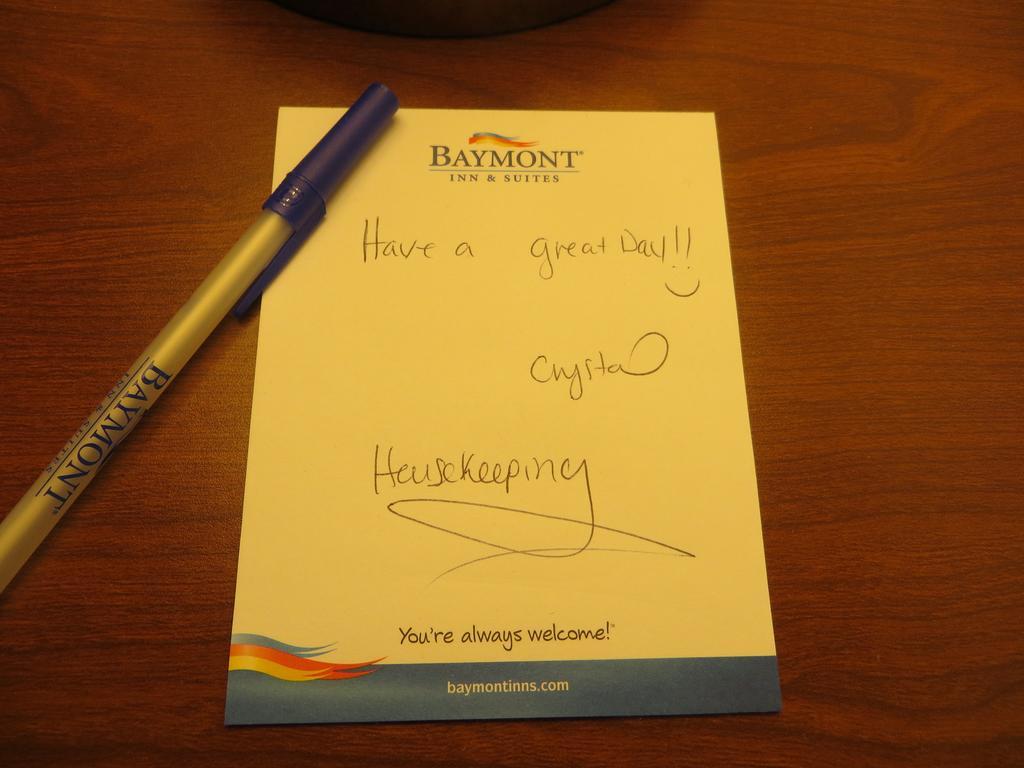 BAYMONT®
INN & SUITES
Have a great Day!!
Crystal
Housekeeping
You're always welcome!™
baymontinns.com
BAYMONT®
INN & SUITES